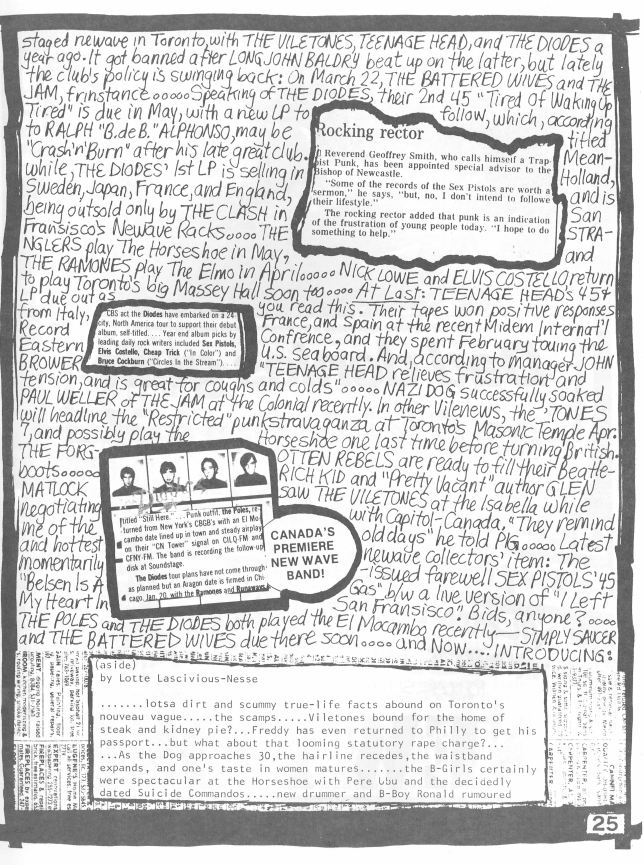 staged newave in Toronto, with THE VILETONES, TEENAGE HEAD, and THE DIODES a
year ago. It got banned after LONG JOHN BALDRY beat up on the latter, but lately
the club's policy is swinging back: On March 22, THE BATTERED WIVES and THE
JAM, f'rinstance.....Speaking of THE DIODES, their 2nd 45 "Tired Of Waking Up
Tired" is due in May, with a new LP to follow, which, according
to RALPH "B.deB." ALPHONSO, may be titled
"Crash'n'Burn" after his late great club. Mean-
while, THE DIODES' 1st LP is selling in Holland,
Sweden, Japan, France, and England, and is
being outsold only by THE CLASH in San
Fransisico's Newave Racks..... THE STRA-
NGLERS play The Horseshoe in May, and
THE RAMONES play The Elmo in April..... NICK LOWE and ELVIS COSTELLO return
to play Toronto's big Massey Hall soon too..... At Last: TEENAGE HEAD's 45+
LP due out as you read this. Their tapes won positive responses
from Italy, France, and Spain at the recent Midem Internat'l
Record Confrence, and they spent February touring the
Eastern U.S. seaboard. And, according to manager JOHN
BROWER "TEENAGE HEAD relieves frustration and
tension, and is great for coughs and colds"..... NAZI DOG successfully soaked
PAUL WELLER of THE JAM at the Colonial recently. In other Vilenews, the 'TONES
will headline the "Restricted" punkstravaganza at Toronto's Masonic Temple Apr.
7, and possibly play the Horseshoe one last time before turning British.
THE FORG- OTTEN REBELS are ready to fill their Beatle-
boots..... RICH KID and "Pretty Vacant" author GLEN
MATLOCK saw THE VILETONES at the Isabella while
negotiating with Capitol-Canada, "They remind
me of the old days" he told PIG..... Latest
and hottest newave Collectors' item: The
momentarily -issued farewell SEX PISTOLS '45
"Belsen Is A Gas" b/w a live version of "I Left
My Heart In San Fransisco". Bids, anyone?.....
THE POLES and THE DIODES both played the El Mocambo recently—SIMPLY SAUCER
and THE BATTERED WIVES due there soon..... and Now.... INTRODUCING:
Rocking rector
Reverend Geoffrey Smith, who calls himself a Trap-
pist Punk, has been appointed special advisor to the
Bishop of Newcastle.
"Some of the records of the Sex Pistols are worth a
sermon," he says, "but, no, I don't intend to followe
their lifestyle."
The rocking rector added that punk is an indication
of the frustration of young people today. "I hope to do
something to help."
CBS act the Diodes have embarked on a 24
city, North America tour to support their debut
album, self-titled. . . . Year end album picks by
leading daily rock writers included Sex Pistols,
Elvis Costello, Cheap Trick ("In Color") and
Bruce Cockburn ("Circles In the Stream"). . . .
titled "Still Here." . . Punk outfit, the Poles, re-
turned from New York's CBGB's with an El Mo-
cambo date lined up in town and steady airplay
on their "CN Tower" signal on CILQ-FM and
CFNY-FM. The band is recording the follow-up
disk at Soundstage.
The Diodes tour plans have not come through
as planned but an Aragon date is firmed in Chi-
cago, Jan. 20, with the Ramones and Runaways.
CANADA'S
PREMIERE
NEW WAVE
BAND!
(aside)
by Lotte Lascivious-Nesse
.......lotsa dirt and scummy true-life facts abound on Toronto's
nouveau vague.....the scamps.....Viletones bound for the home of
steak and kidney pie?...Freddy has even returned to Philly to get his
passport...but what about that looming statutory rape charge?...
...As the Dog approaches 30,the hairline recedes,the waistband
expands, and one's taste in women matures........the B-Girls certainly
were spectacular at the Horseshoe with Pere Ubu and the decidedly
dated Suicide Commandos.....new drummer and B-Boy Ronald rumoured
25